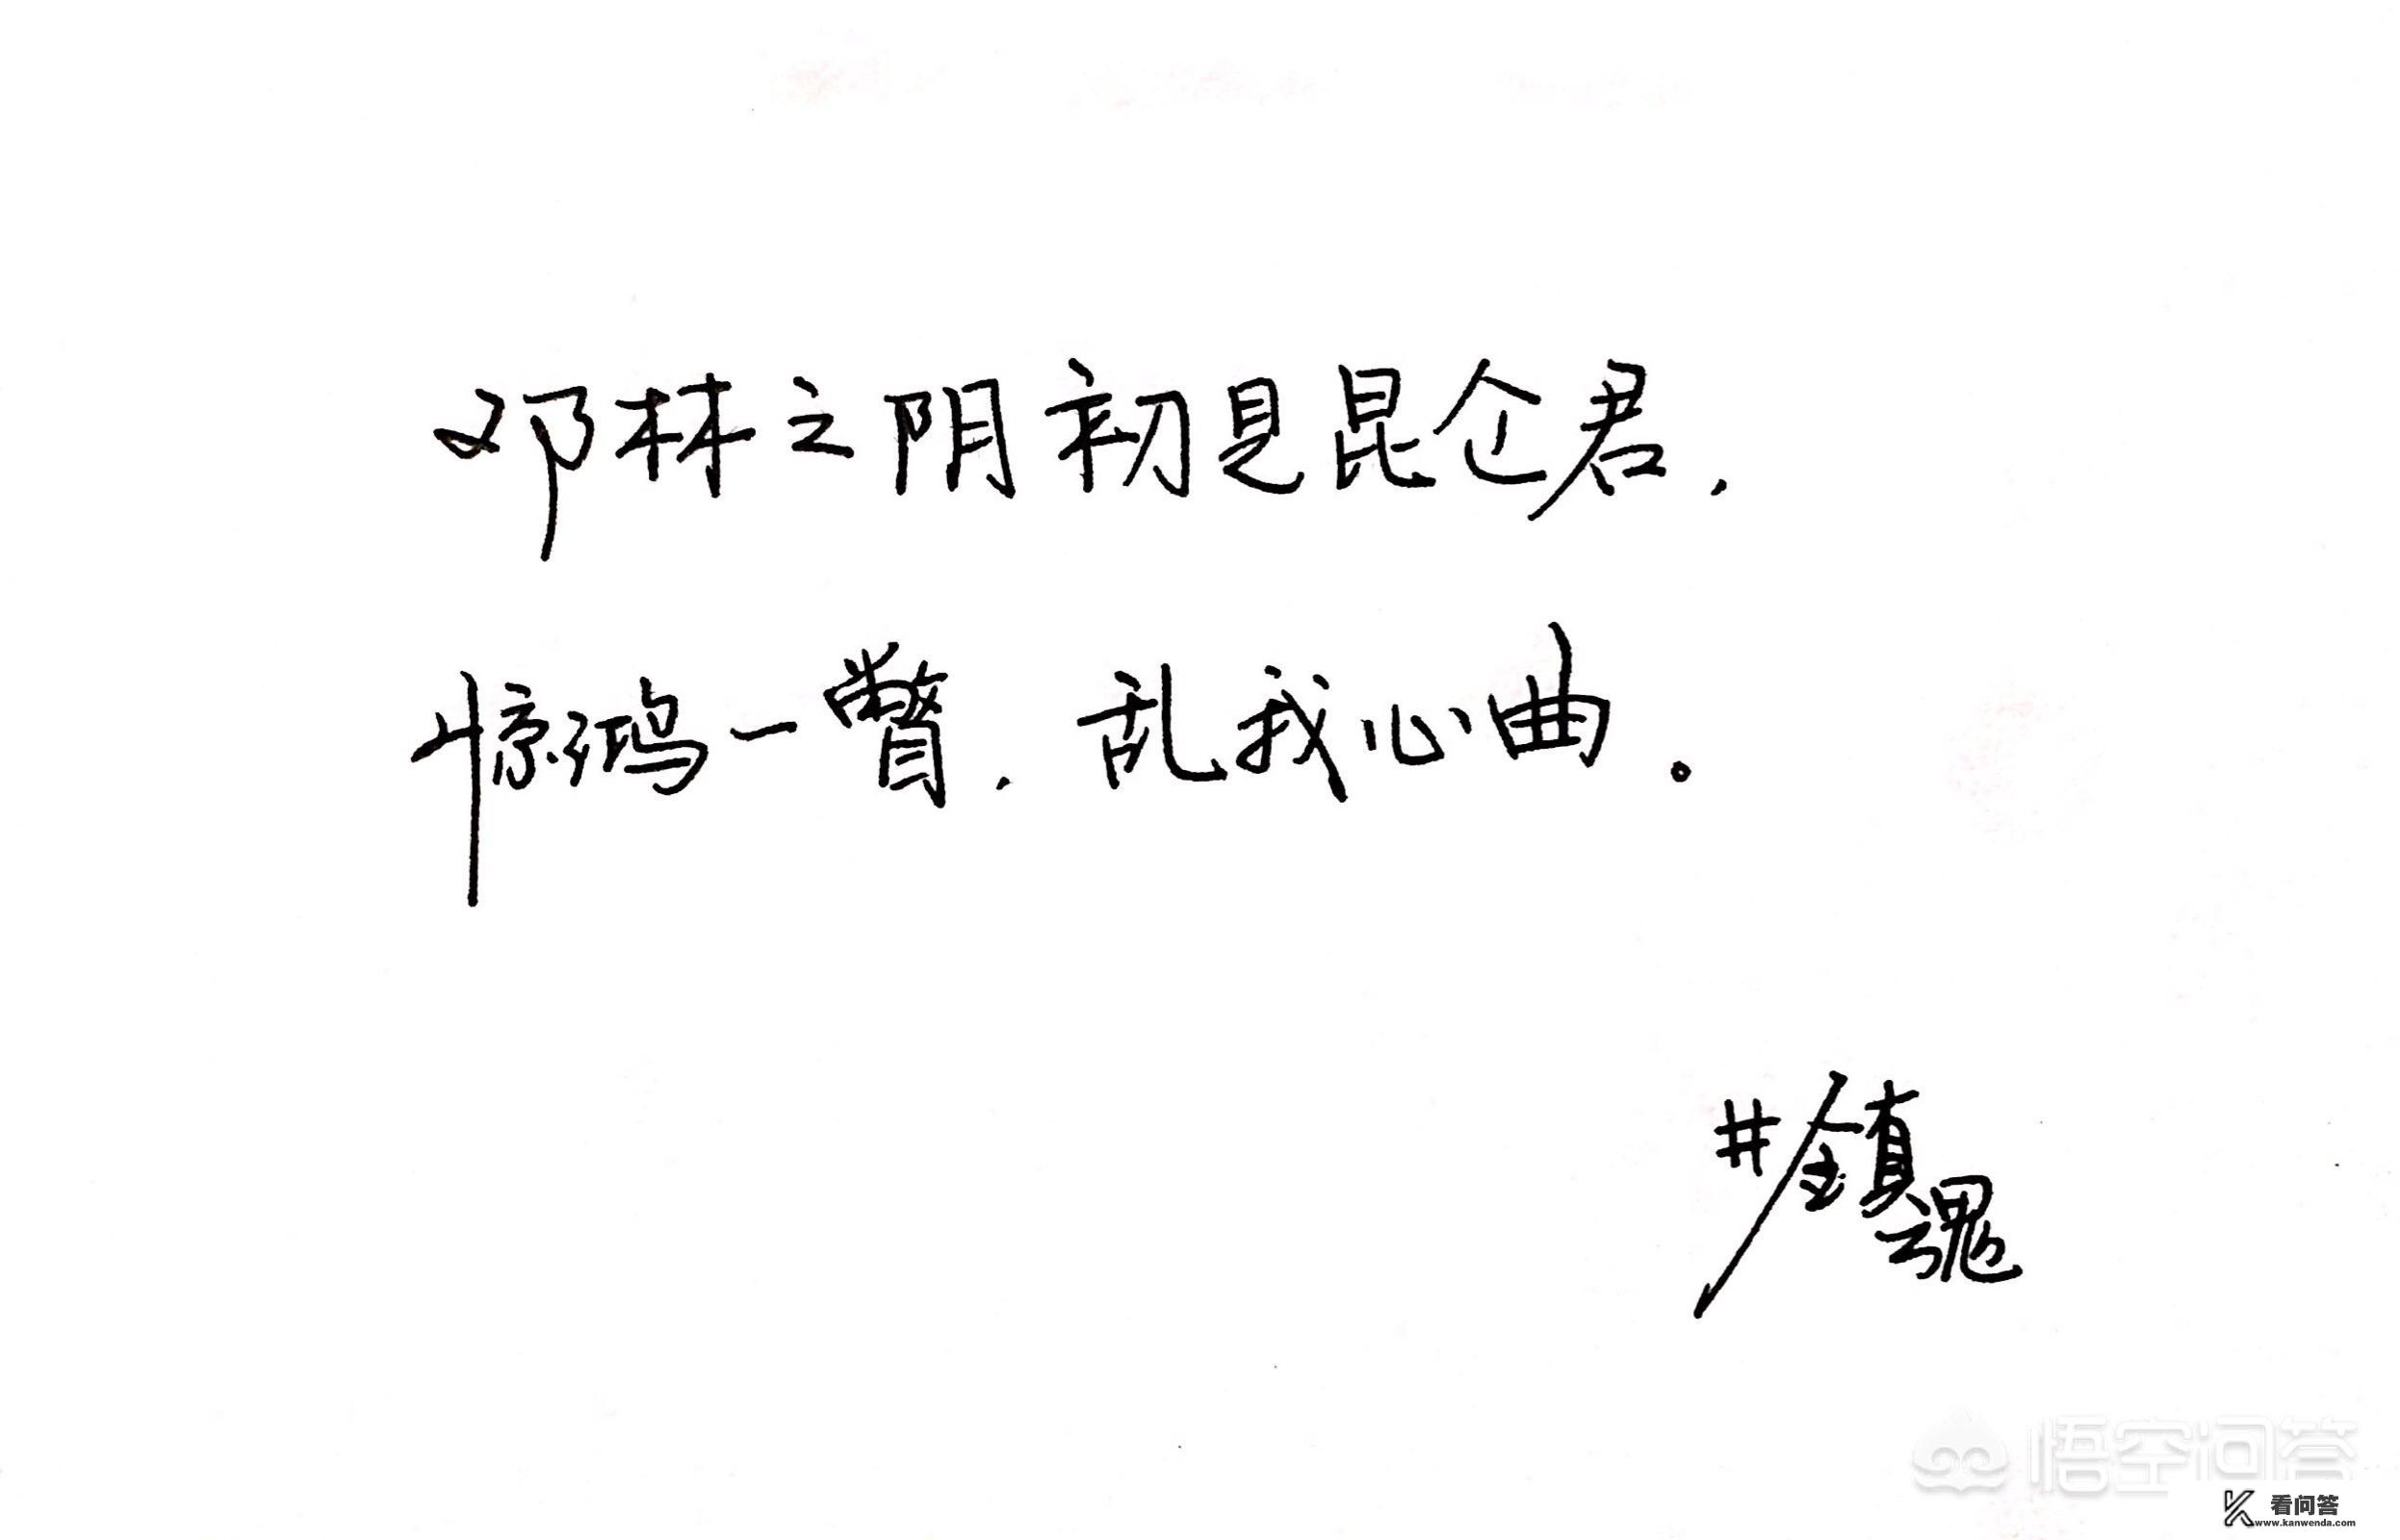 邓林之阴初是昆仑君，
惊鸿一瞥，乱我心曲。
#镇魂
悟空问答
看问答
www.kanwenda.com